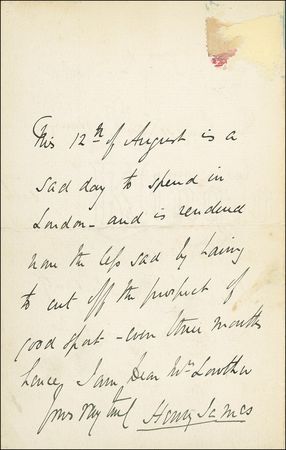 This 12th of August is a
sad day to spend in
London - and is rendered
none the less sad by having
to cut off the prospect of
good sport - even three months
hence, I am, Dear Mr Lowther
Yours very truly Henry James